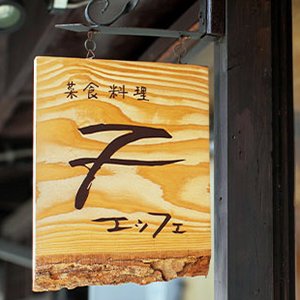 菜食料理
エシフェ